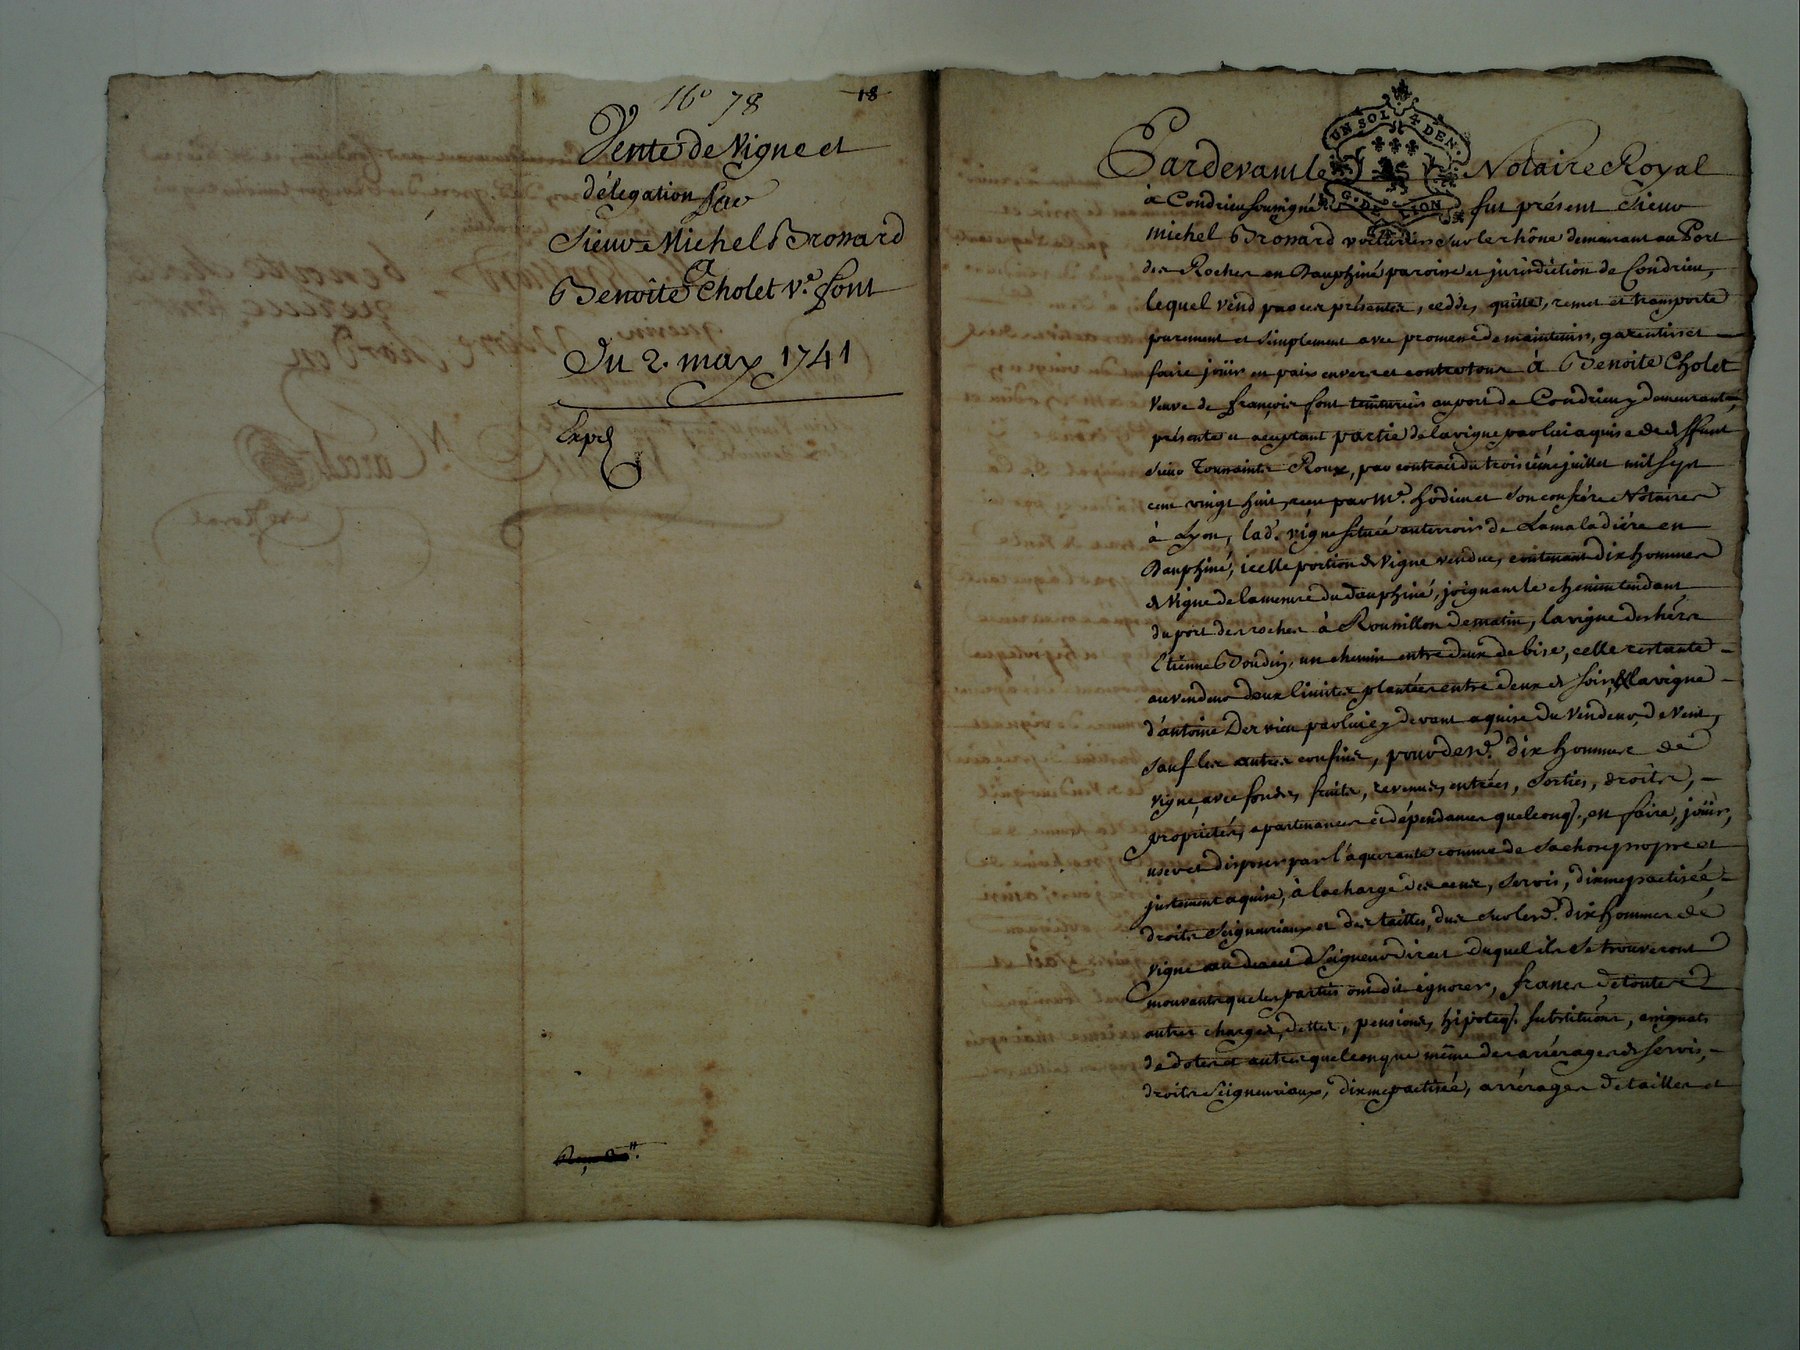 16º 78
18
Vente de Vigne et
délegation par
Sieur Michel Brossard
à
Benoite Cholet vᵉ. font
Du 2. may 1741
Expé
UN SOL 4 DEN.
G. DE LION
Pardevant le Notaire Royal
à Condrieu soussigné fut présent Sieur
Michel Brossard voiturier sur le rhône demeurant au Port
des Roches en Dauphiné paroisse et jurisdiction de Condrieu,
lequel vend par ces présentes, cedde, quitte, remet et transporte
purement et simplement avec promesse de maintenir, garentir et
faire joüir en paix envers et contre tous à Benoite Cholet
veuve de françois font teinturier au port de Condrieu y demeurante,
présente et aceptant partie de la vigne par lui aquise de deffunt
Sieur Toussaints Roux, par contract du troisième juillet mil sept
cent vingt huit, reçu par Mᵉ. hodieu et son confrère Notaires
à Lyon, lad. vigne située au terroir de Lamaladière en
Dauphiné, icelle portion de Vigne vendue, contenant dix hommes
de Vigne de la mesure du Dauphiné, joignant le chemin tendant
du port des roches à Roussillon de matin, la vigne des hérs
Etienne Boudin, un chemin entre deux de bise, celle restante
au vendeur deux limites plantées entre deux de soir, & la vigne
d'antoine Dervieu par lui cy devant aquise du Vendeur, de Vent,
sauf les autres confins, pour desd. dix hommes de
vigne, avec fonds, fruits, revenus, entrées, sorties, droits,
proprietés, apartenances et dépendances quelconq., en faire, joüir,
user et disposer par l'aquerante comme de sa chose propre et
justement aquise, à la charge des cens, servis, dixme pactisée,
droits Seigneuriaux et des tailles, dus sur lesd. dix hommes de
vigne au Seigneur direct duquel ils se trouveront
mouvants que les parties ont dit ignorer, francs de toutes
autres charges, dettes, pensions, hipoteq., substitutions, assignats
de dotes et autres quelconque même des arrérages de servis,
droits Seigneuriaux, dixme pactisée, arrérages de tailles et